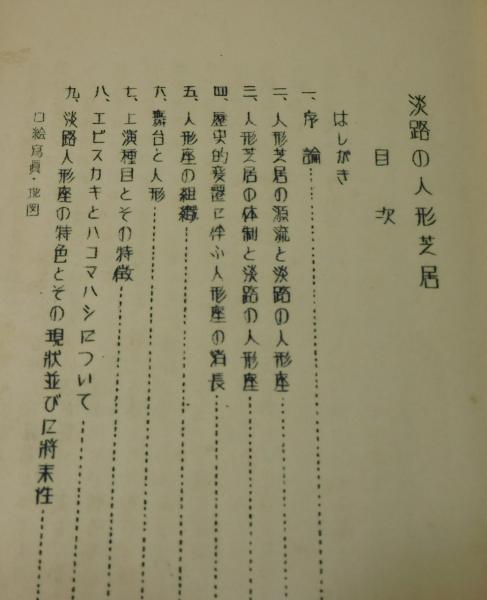 淡路の人形芝居
目次
はしがき
一、序論
二、人形芝居の源流と淡路の人形座
三、人形芝居の体制と淡路の人形座
四、歴史的変遷に伴ふ人形座の消長
五、人形座の組織
六、舞台と人形
七、上演種目とその特徴
八、エビスカキとハコマハシについて
九、淡路人形座の特色とその現状並びに将来性
口絵寫眞・地図